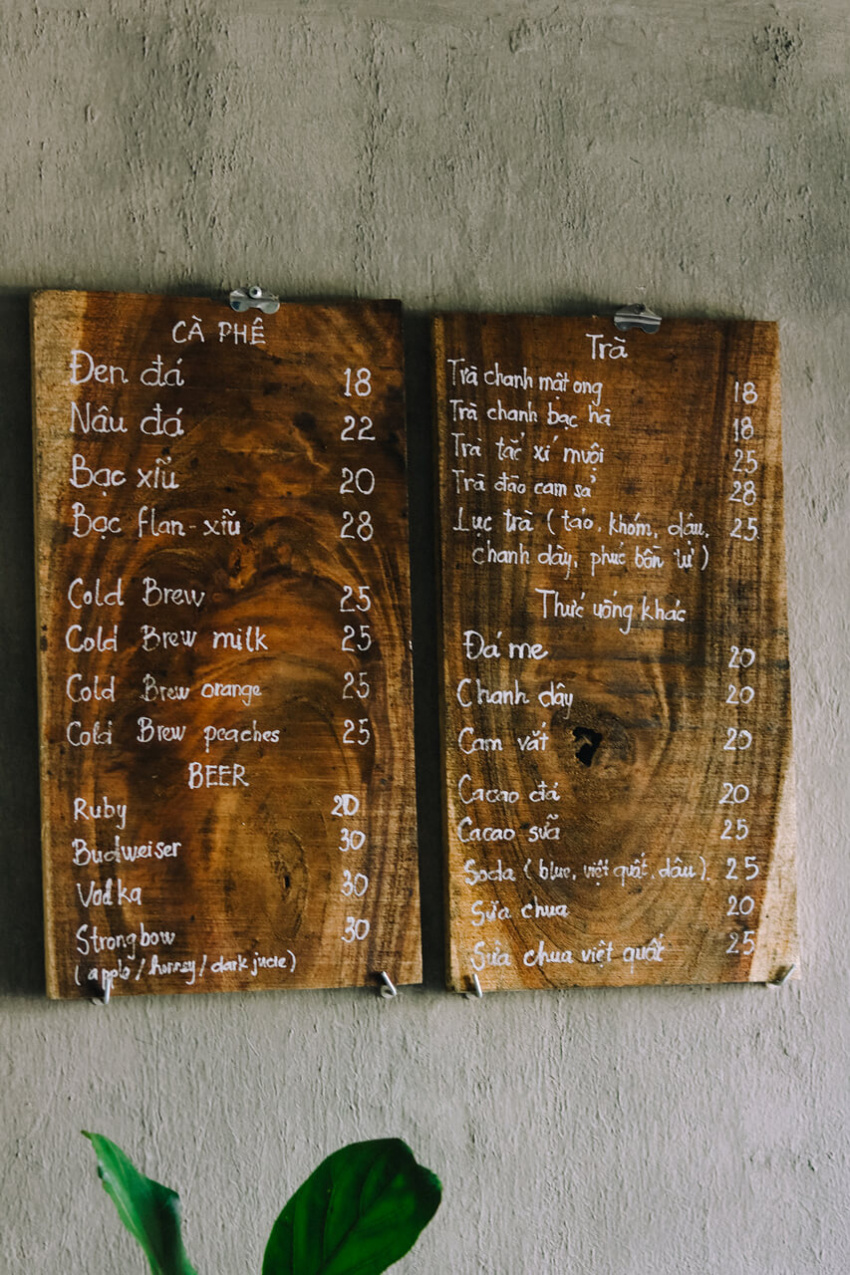 CÀ PHÊ
Đen đá 18
Nâu đá 22
Bạc xỉu 20
Bạc flan-xỉu 28
Cold Brew 25
Cold Brew milk 25
Cold Brew orange 25
Cold Brew peaches 25
BEER
Ruby 20
Budweiser 30
Vodka 30
Strongbow 30
(apple / honey / dark jucie)
Trà
Trà chanh mật ong 18
Trà chanh bạc hà 18
Trà tắc xí muội 25
Trà đào cam sả 28
Lục trà (táo, khóm, dâu, 25
chanh dây, phúc bồn tử)
Thức uống khác
Đá me 20
Chanh dây 20
Cam vắt 20
Cacao đá 20
Cacao sữa 25
Soda (blue, việt quất, dâu) 25
Sữa chua 20
Sữa chua việt quất 25